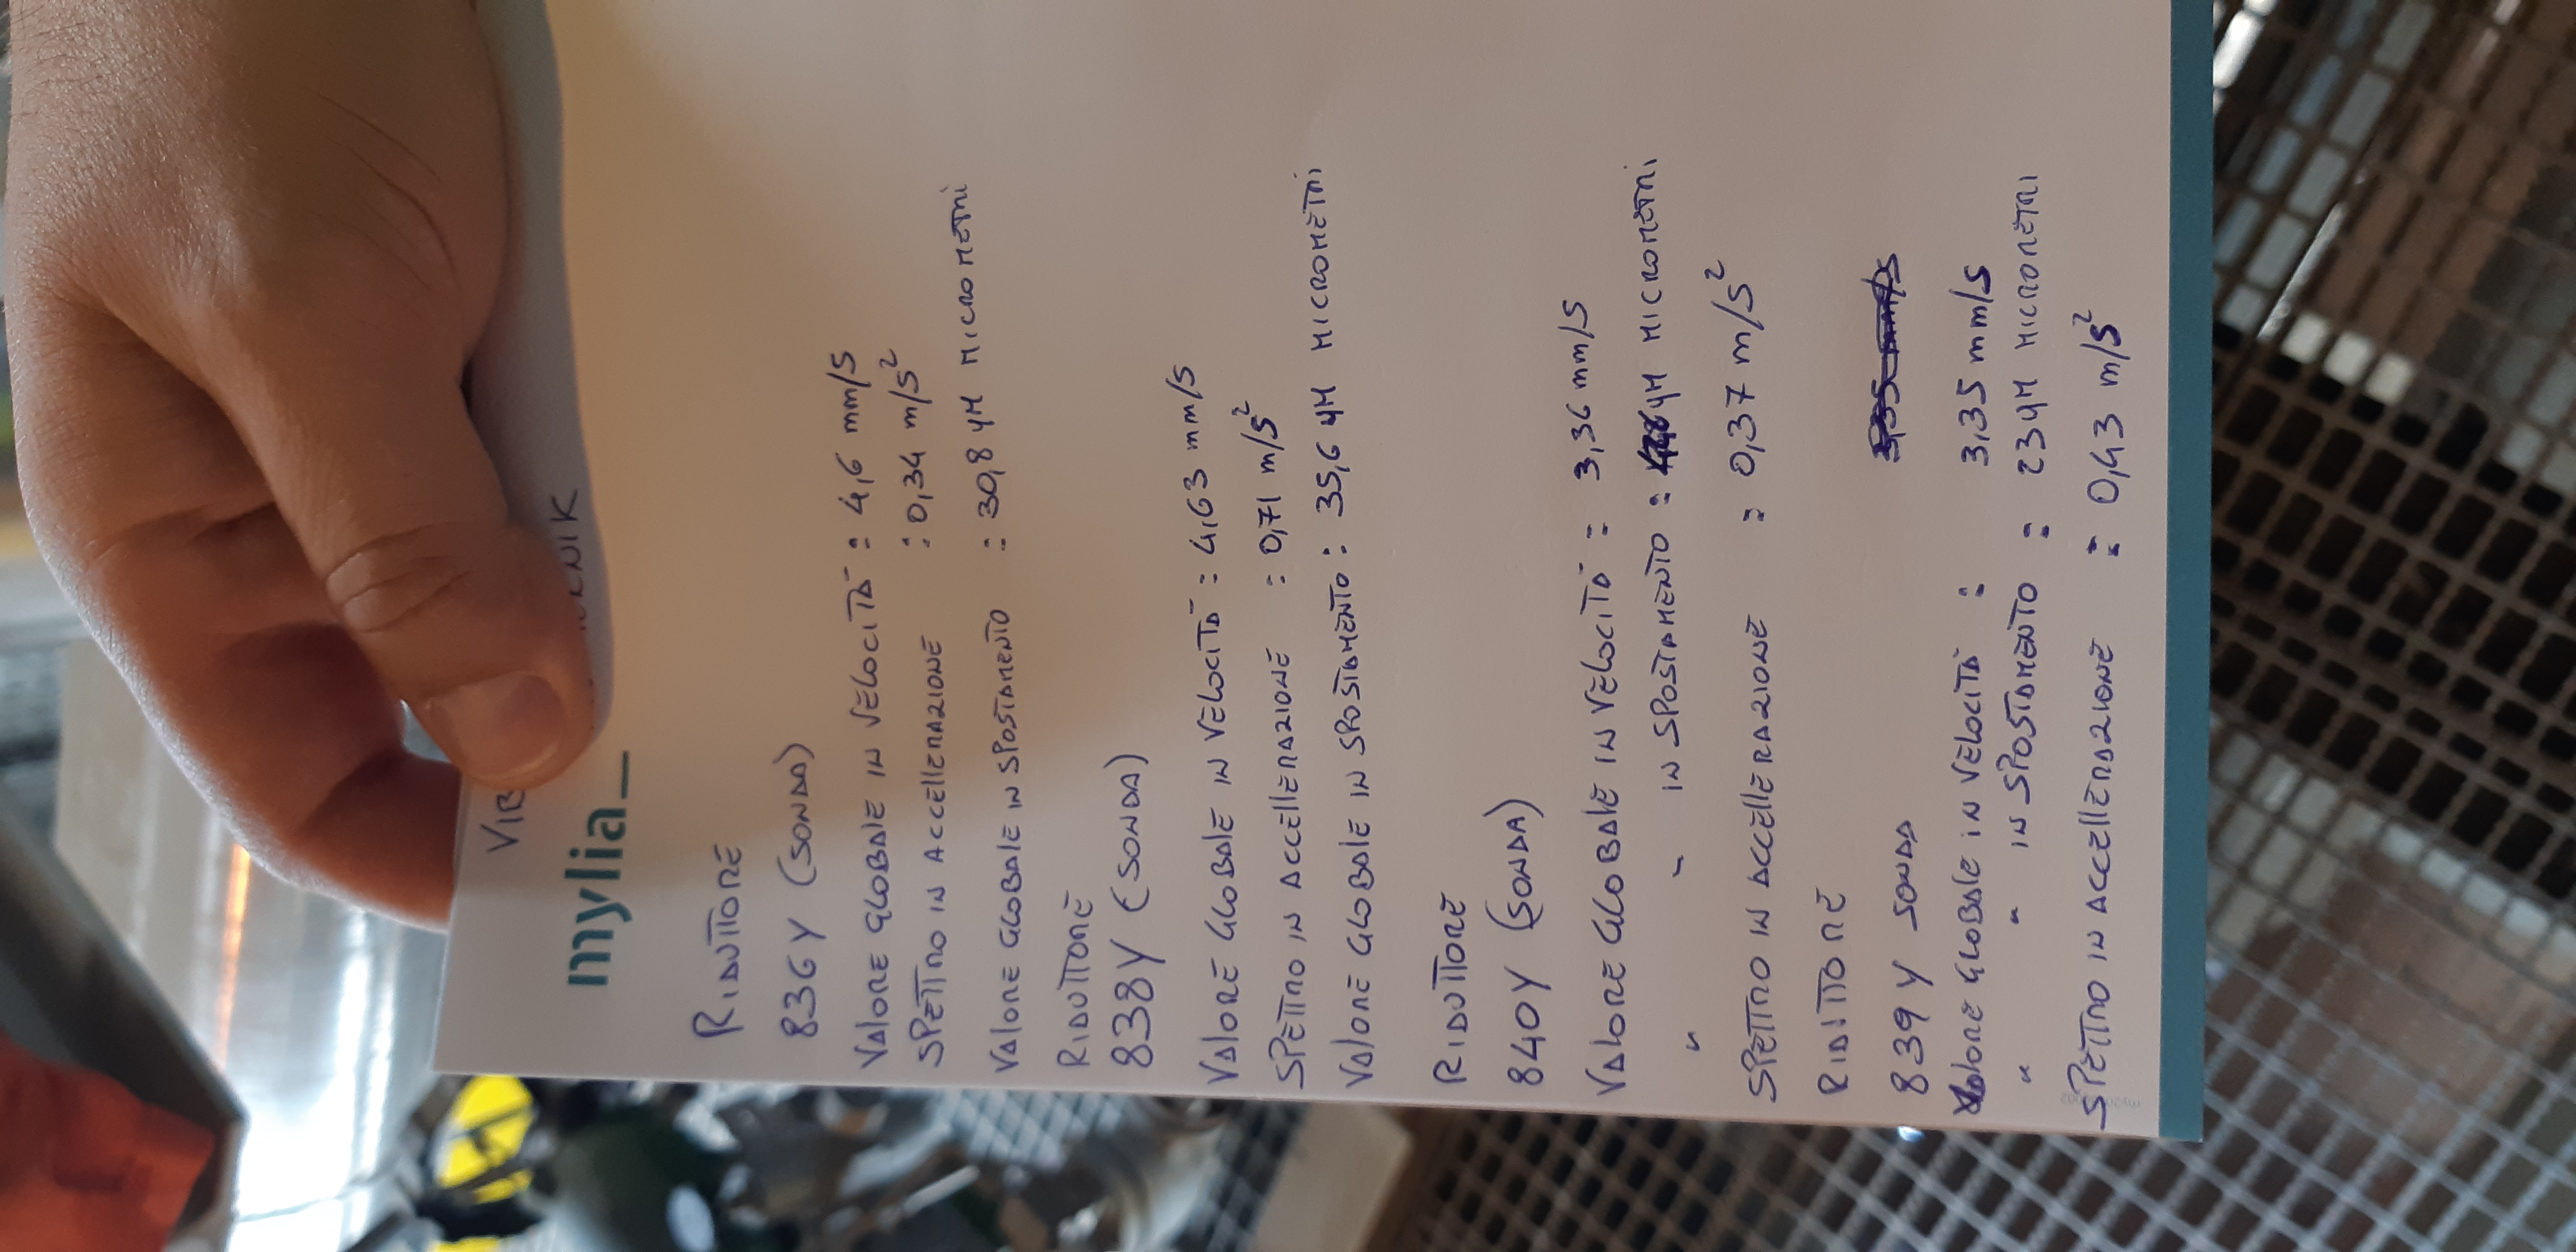 mylia_
RIDUTTORE
836Y (SONDA)
VALORE GLOBALE IN VELOCITÀ : 4,6 mm/s
SPETTRO IN ACCELLERAZIONE : 0,34 m/s²
VALORE GLOBALE IN SPOSTAMENTO : 30,8 µM MICROMETRI
RIDUTTORE
838Y (SONDA)
VALORE GLOBALE IN VELOCITÀ : 4,63 mm/s
SPETTRO IN ACCELLERAZIONE : 0,71 m/s²
VALORE GLOBALE IN SPOSTAMENTO : 35,6 µM MICROMETRI
RIDUTTORE
840Y (SONDA)
VALORE GLOBALE IN VELOCITÀ : 3,36 mm/s
" " IN SPOSTAMENTO : µM MICROMETRI
SPETTRO IN ACCELLERAZIONE : 0,37 m/s²
RIDUTTORE
839Y SONDA
VALORE GLOBALE IN VELOCITÀ : 3,35 mm/s
" " IN SPOSTAMENTO : 23 µM MICROMETRI
SPETTRO IN ACCELLERAZIONE : 0,43 m/s²